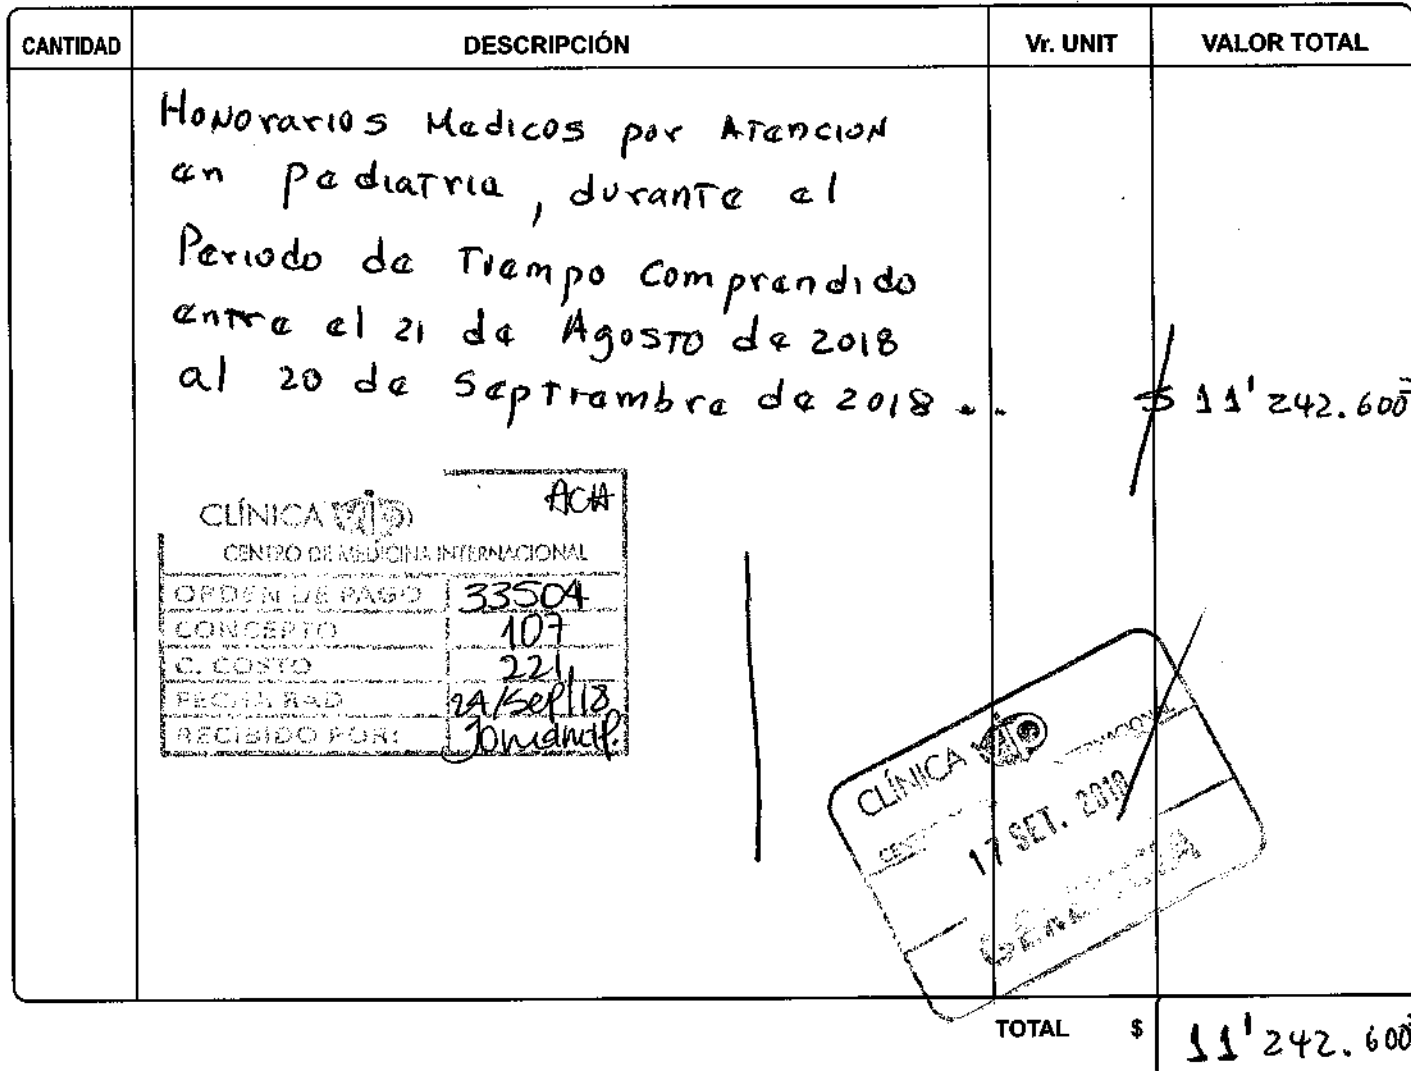 CANTIDAD DESCRIPCIÓN Vr. UNIT VALOR TOTAL
Honorarios Medicos por Atencion
en Pediatria, durante el
Periodo de Tiempo Comprendido
entre el 21 de Agosto de 2018
al 20 de Septiembre de 2018 .. $ 11'242.600
ACH
CLÍNICA VIP
CENTRO DE MEDICINA INTERNACIONAL
ORDEN DE PAGO 33504
CONCEPTO 107
C. COSTO 221
FECHA RAD 24/Sep/18
RECIBIDO POR:
CLÍNICA VIP
INTERNACIONAL
17 SET. 2018
TOTAL $ 11'242.600